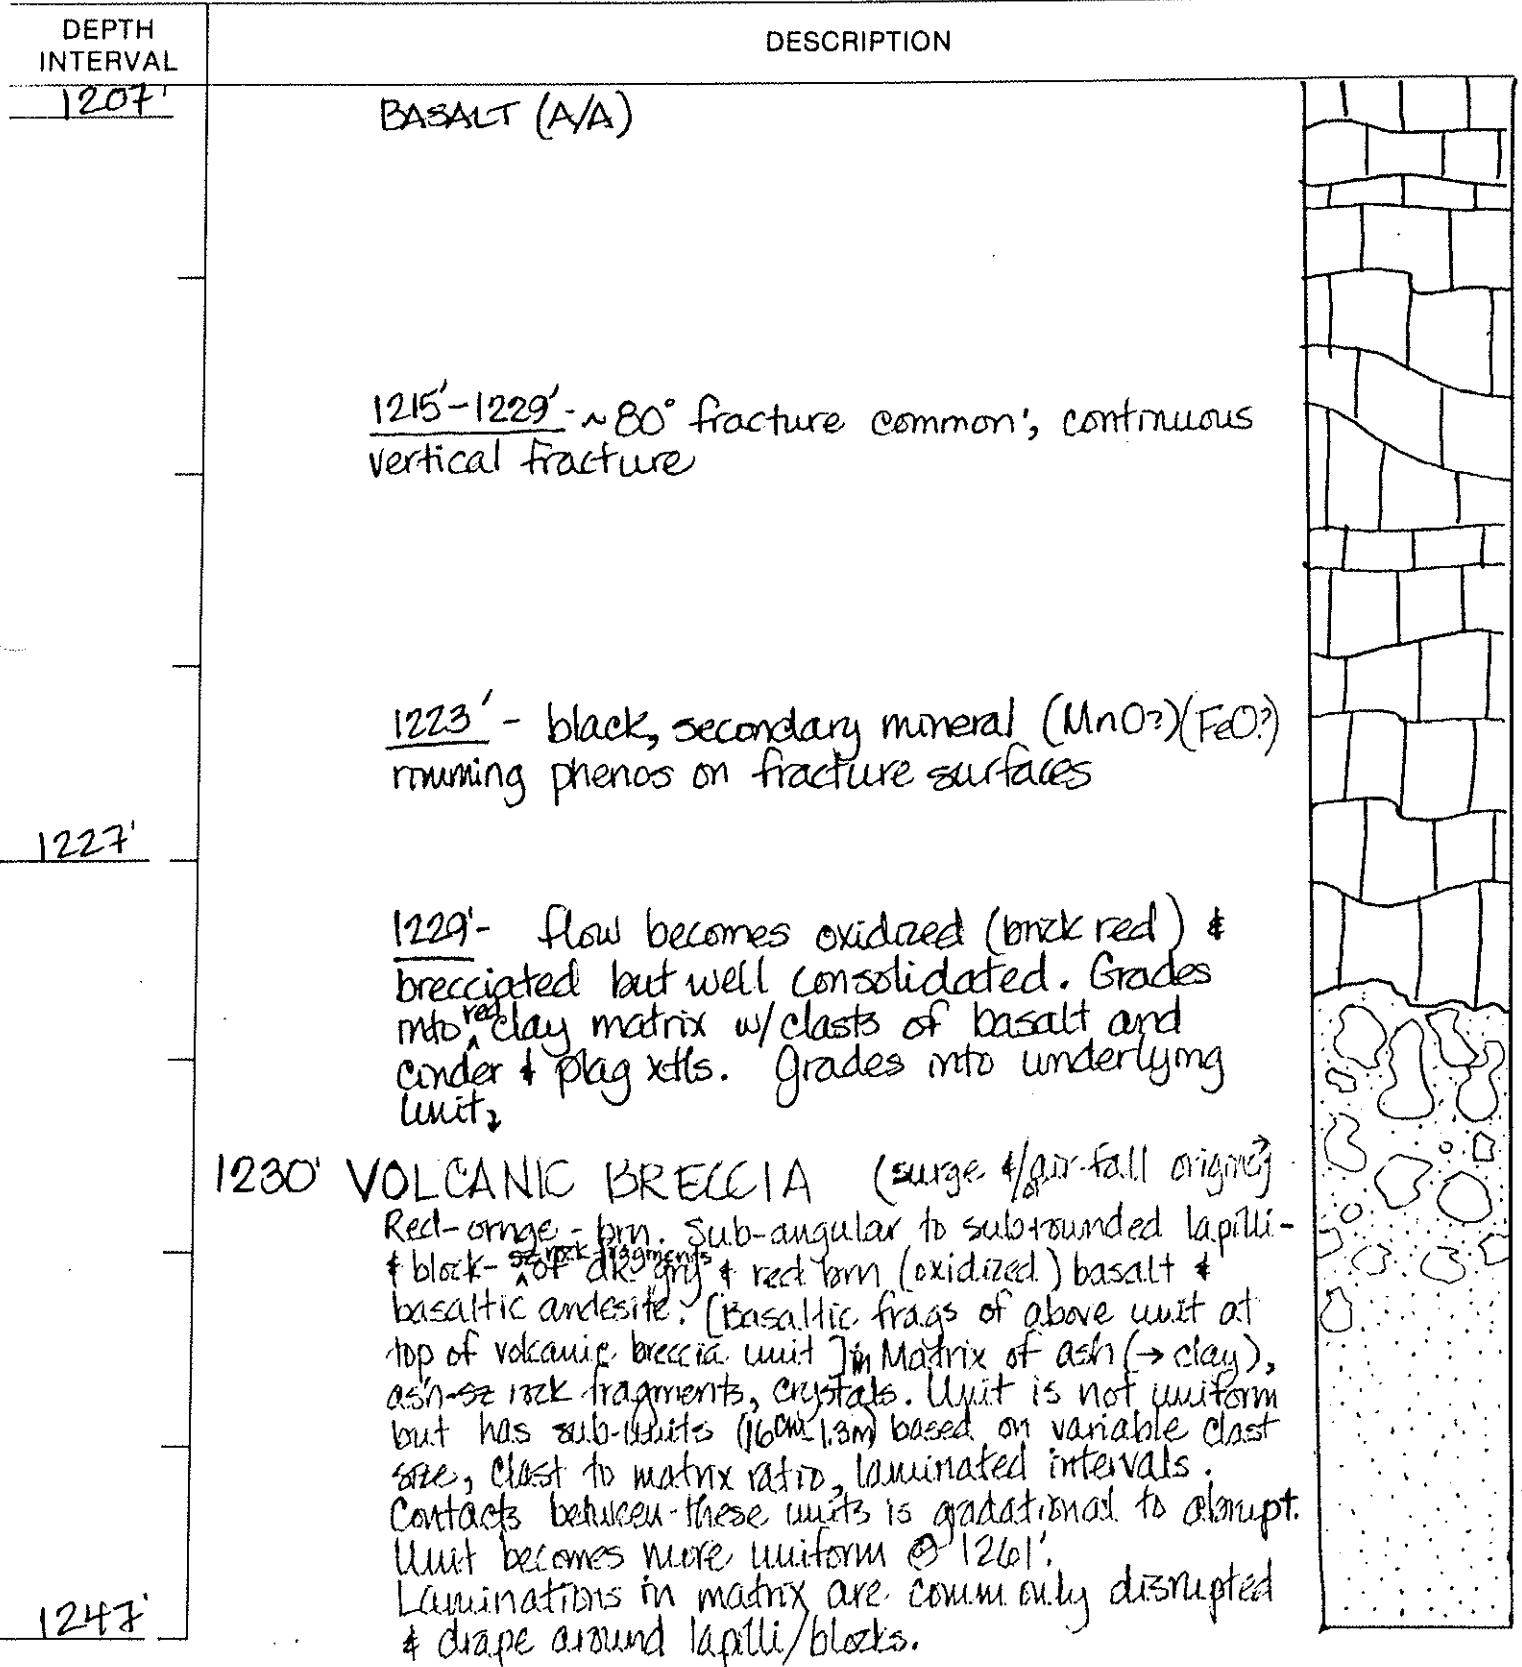 DEPTH INTERVAL
DESCRIPTION
1207'
BASALT (A/A)
1215'-1229' - ~80° fracture common; continuous
vertical fracture
1223' - black, secondary mineral (MnO?)(FeO?)
rimming phenos on fracture surfaces
1227'
1229'- flow becomes oxidized (brick red) &
brecciated but well consolidated. Grades
into red clay matrix w/clasts of basalt and
cinder & plag xtls. Grades into underlying
unit.
1230' VOLCANIC BRECCIA (surge &/or air-fall origin?)
Red-ornge-brn. Sub-angular to subrounded lapilli-
& block-sz rock fragments of dk gry & red brn (oxidized) basalt &
basaltic andesite. [Basaltic frags of above unit at
top of volcanic breccia unit] in Matrix of ash (→ clay),
ash-sz rock fragments, crystals. Unit is not uniform
but has sub-units (16cm-1.3m) based on variable clast
size, clast to matrix ratio, laminated intervals.
Contacts between these units is gradational to abrupt.
Unit becomes more uniform @ 1261'.
Laminations in matrix are commonly disrupted
& drape around lapilli/blocks.
1247'